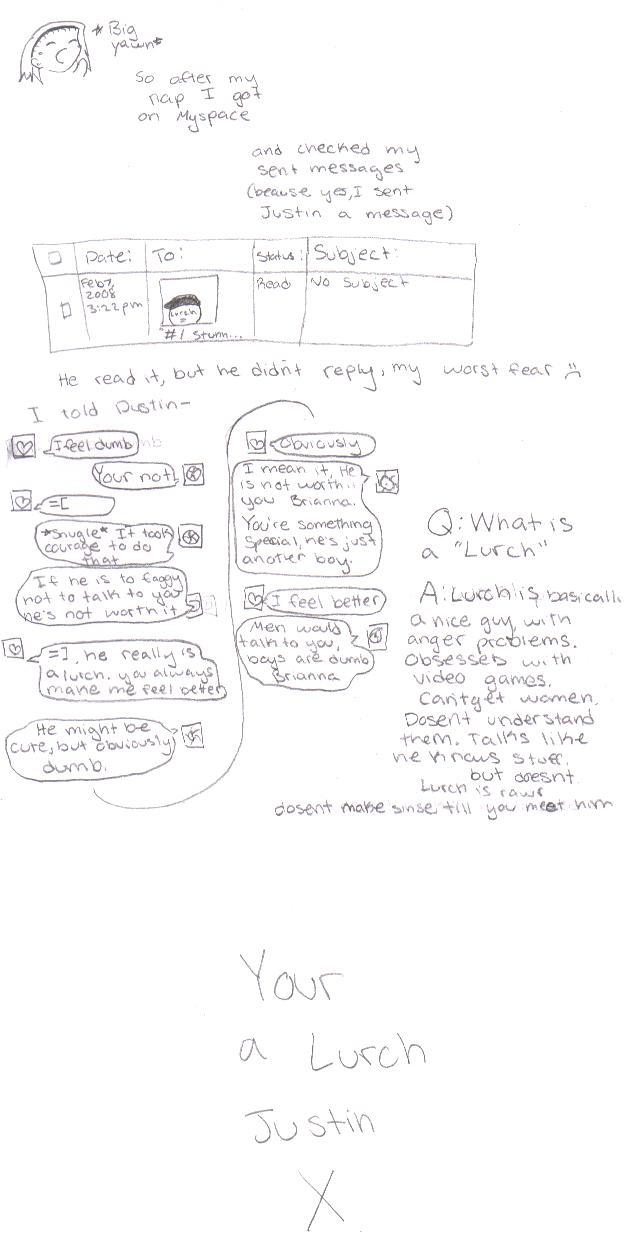 *Big
yawn*
So after my
nap I got
on Myspace
and checked my
sent messages
(beause yes, I sent
Justin a message)
Date: To: Status: Subject:
Feb 7,
2008
3:22pm
Lurch
#1 Stunn...
Read
No Subject
He read it, but he didn't reply, my worst fear :(
I told Dustin-
I feel dumb
Your not
=[
*Snugle* It took
courage to do
that
If he is to faggy
not to talk to you
he's not worth it
=], he really is
a lurch. you always
make me feel better
He might be
cute, but obviously
dumb.
Obviously
I mean it, He
is not worth..
you Brianna.
You're something
special, he's just
another boy.
I feel better
Men would
talk to you,
boys are dumb
Brianna
Q: What is
a "Lurch"
A: Lurch is basicall
a nice guy with
anger problems.
Obsesses with
video games.
Cant get women.
Dosent understand
them. Talks like
he knows stuff.
but doesnt.
Lurch is rawr
dosent make sinse till you meet him
Your
a Lurch
Justin
X